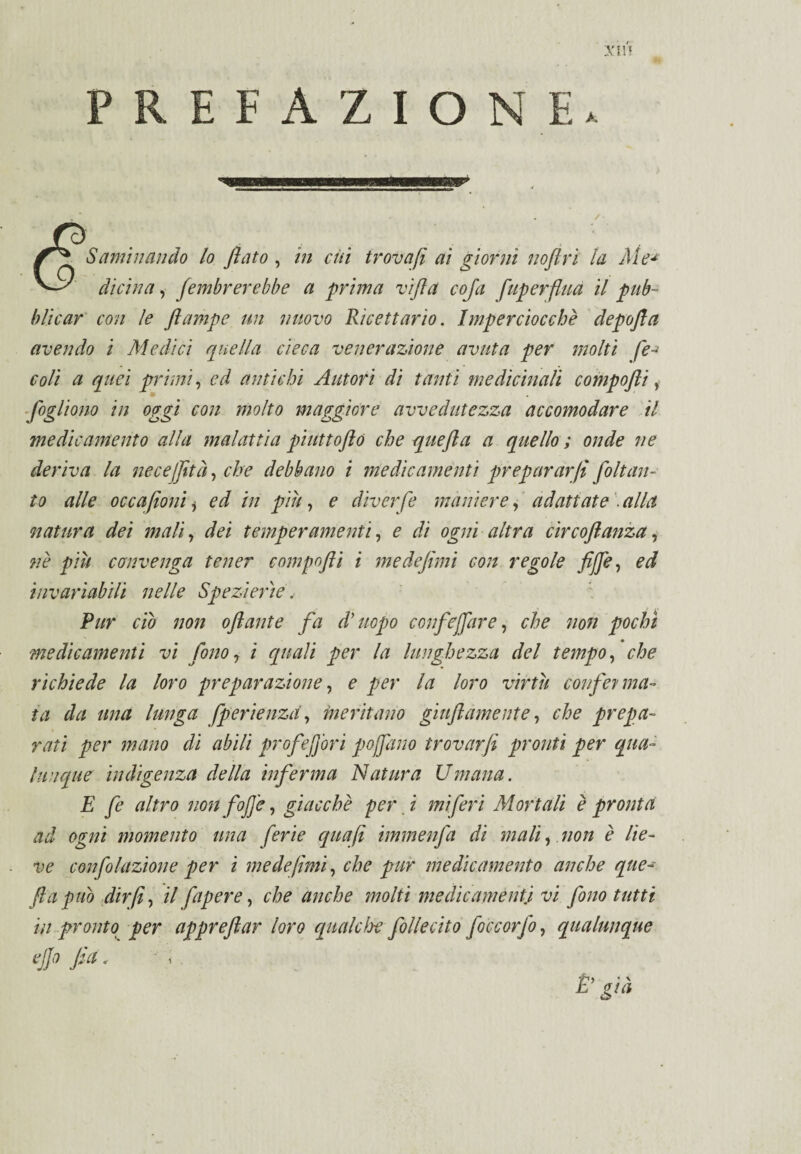 xiii
PREFAZIONE.
ESaminando lo ſtato, in cui trovaſi ai giorni noſtri la Me-
dicina, ſembrerebbe a prima viſta coſa ſuperflua il pub-
blicar con le ſtampe un nuovo Ricettario. Imperciocchè depoſta
avendo i Medici quella cieca venerazione avuta per molti ſe-
coli a quei primi, ed antichi Autori di tanti medicinali compoſti,
ſogliono in oggi con molto maggiore avvedutezza accomodare il
medicamento alla malattia piuttoſto che queſta a quello; onde ne
deriva la neceſſità, che debbano i medicamenti prepararſi ſoltan-
to alle occaſioni, ed in più, e diverſe maniere, adattate alla
natura dei mali, dei temperamenti, e di ogni altra circoſtanza,
nè più convenga tener compoſti i medeſimi con regole fiſſe, ed
invariabili nelle Spezierìe.
Pur ciò non oſtante fa d'uopo confeſſare, che non pochi
medicamenti vi ſono, i quali per la lunghezza del tempo, che
richiede la loro preparazione, e per la loro virtù conferma-
ta da una lunga ſperienza, meritano giuſtamente, che prepa-
rati per mano di abili profeſſori poſſano trovarſi pronti per qua-
lunque indigenza della inferma Natura Umana.
E ſe altro non foſſe, giacchè per i miſeri Mortali è pronta
ad ogni momento una ſerie quaſi immenſa di mali, non è lie-
ve conſolazione per i medeſimi, che pur medicamento anche que-
ſta può dirſi, il ſapere, che anche molti medicamenti vi ſono tutti
in pronto per appreſtar loro qualche ſollecito ſoccorſo, qualunque
eſſo ſia.
E' già